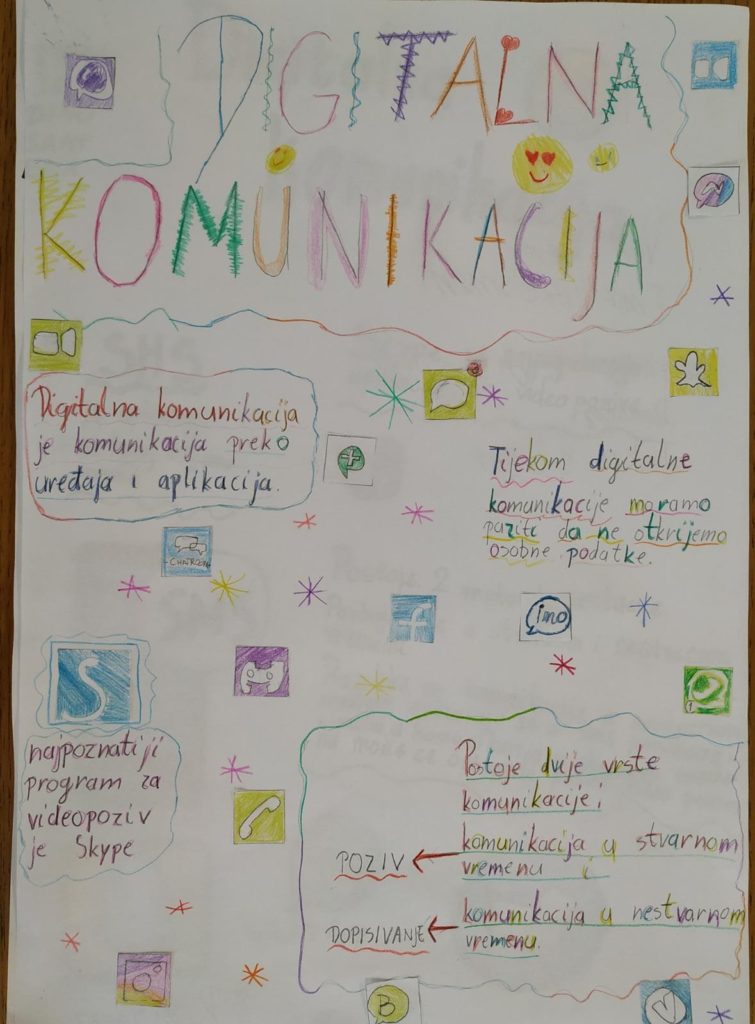 DIGITALNA
KOMUNIKACIJA
Digitalna komunikacija
je komunikacija preko
uređaja i aplikacija.
Tijekom digitalne
komunikacije moramo
paziti da ne otkrijemo
osobne podatke.
CHATROOM
f
imo
S
1
najpoznatiji
program za
videopoziv
je Skype
Postoje dvije vrste
komunikacije:
komunikacija u stvarnom
vremenu i
POZIV
komunikacija u nestvarnom
vremenu.
DOPISIVANJE
B